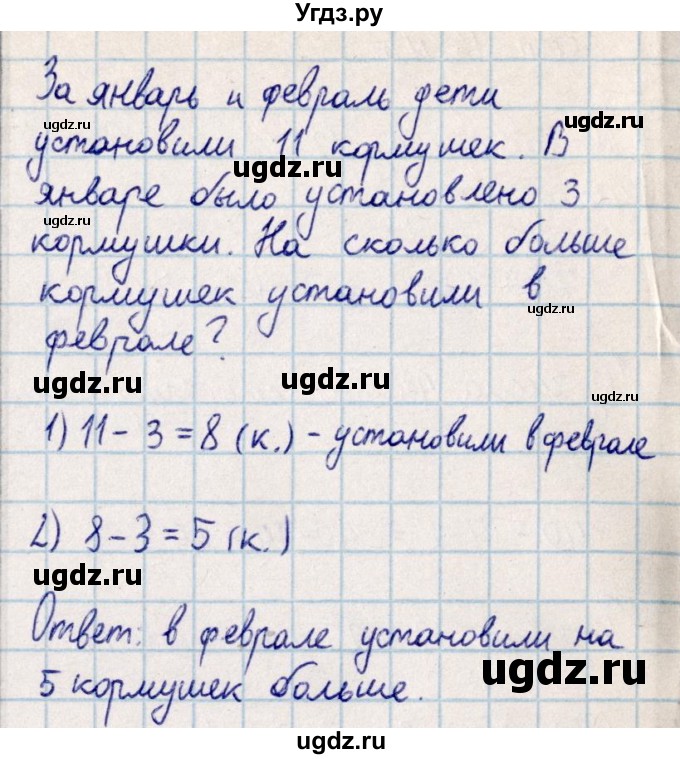 Угдз.ру
За январь и февраль дети
ugdz.ru
ugdz.ru
установили 11 кормушек. В
ugdz.ru
январе было установлено 3
ugdz.ru
кормушки. На сколько больше
кормушек установили в
ugdz.ru
феврале?
ugdz.ru
ugdz.ru
ugdz.ru
1) 11 - 3 = 8 (к.) - установили в феврале
2) 8 - 3 = 5 (к.)
ugdz.ru
Ответ: в феврале установили на
ugdz.ru
5 кормушек больше.
ugdz.ru